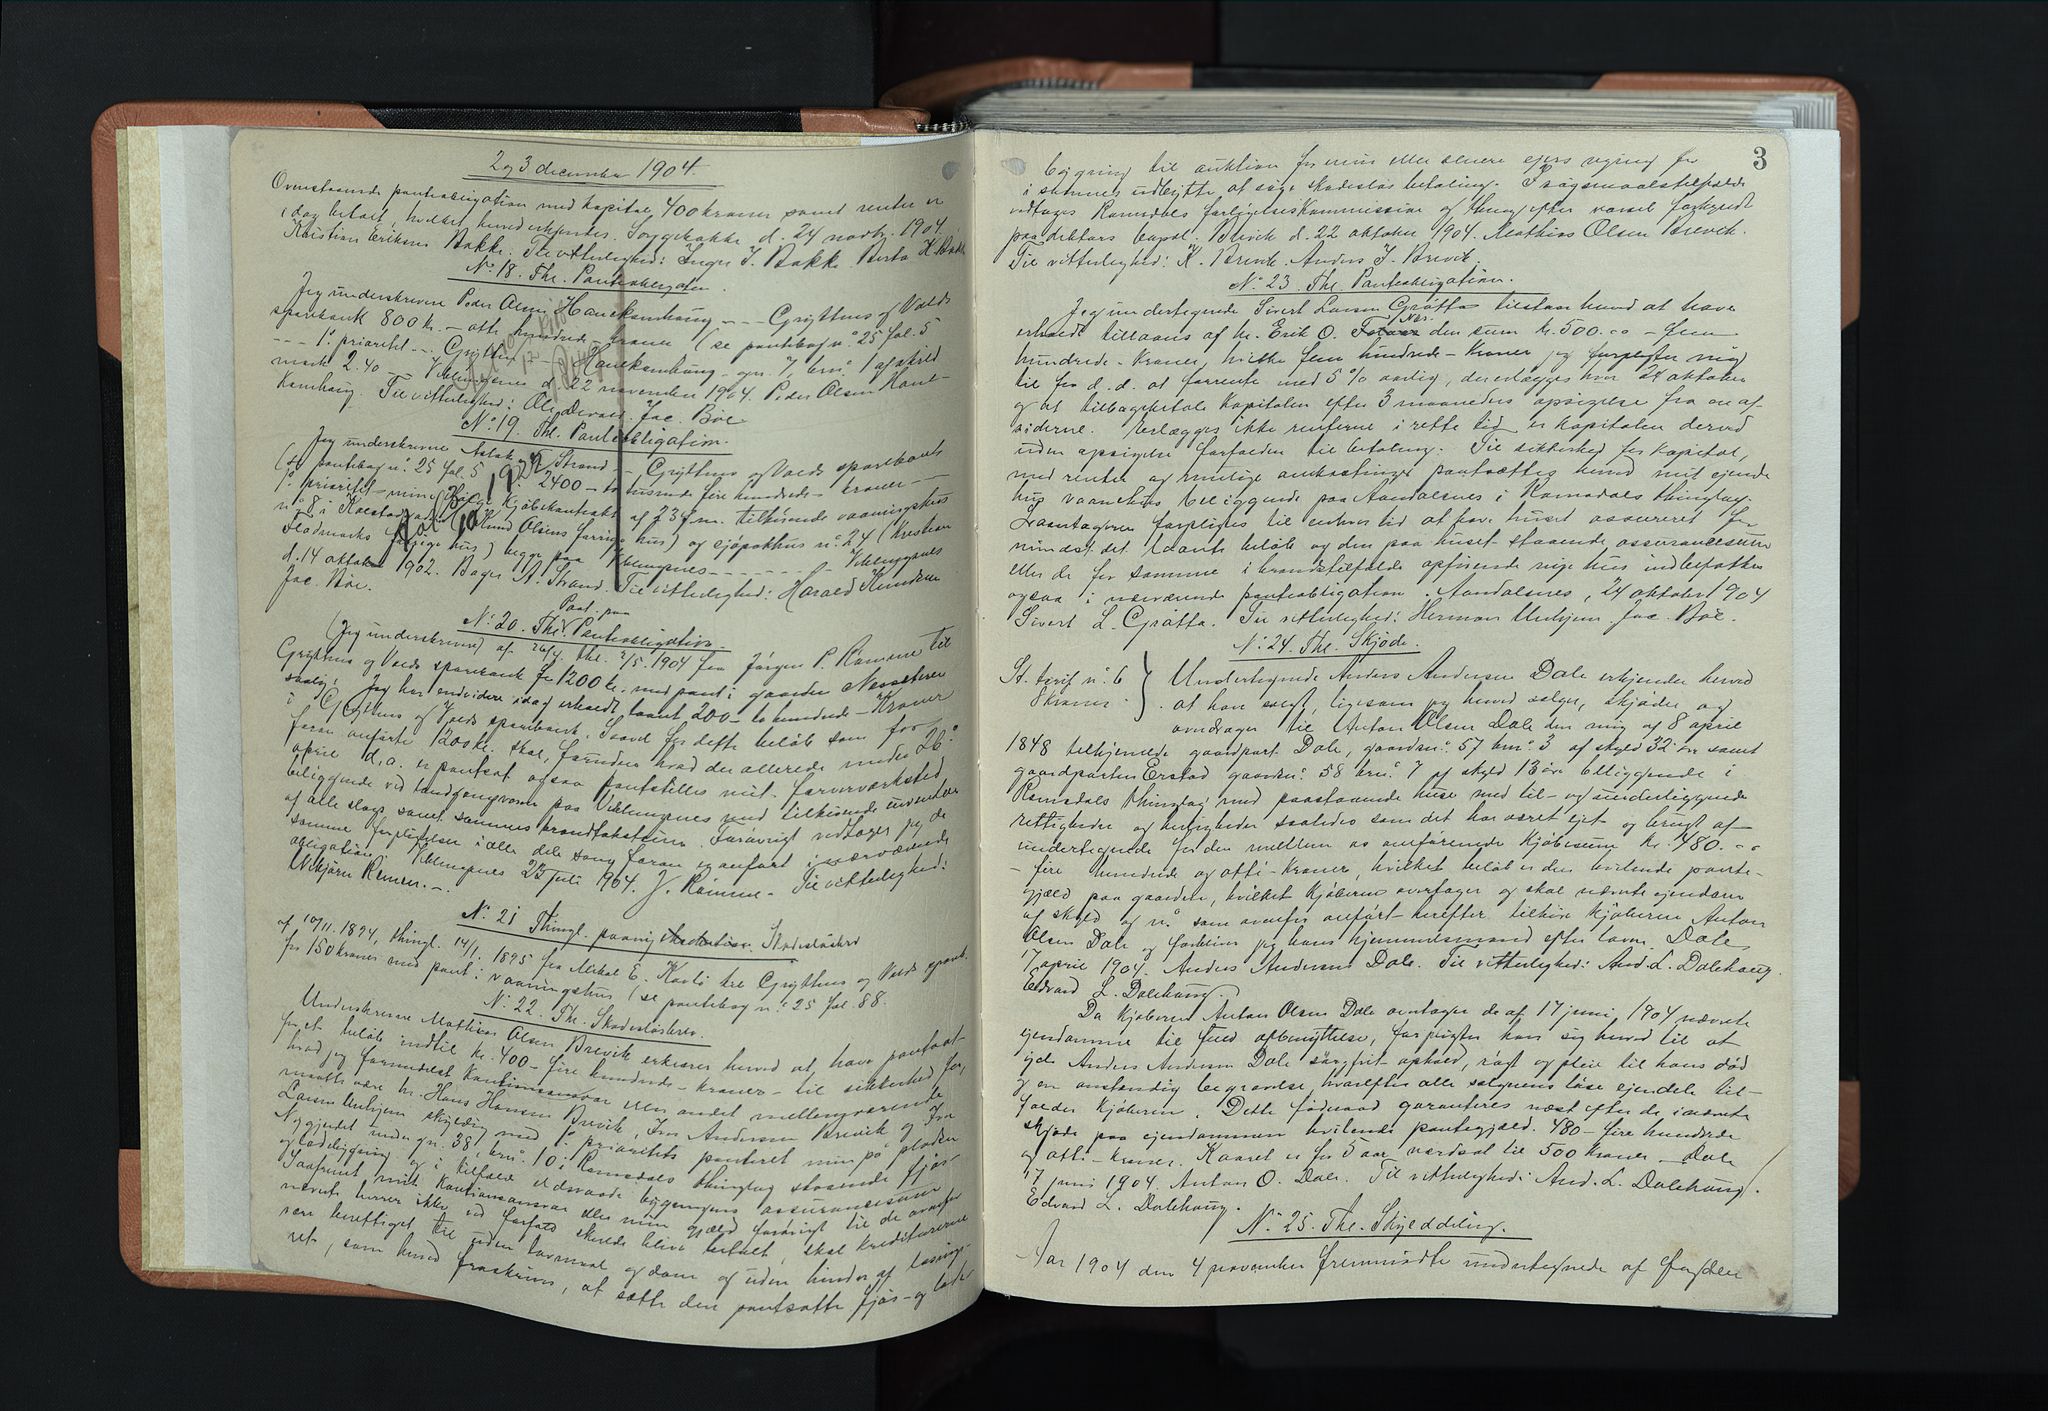 2 og 3 december 1904.
Ovenstaaende pantobligation med kapital 400 kroner samt renter er
idag betalt, hvilket herved erkjendes. Soggebakke d. 24 novbr. 1904.
Kristian Eriksen Bakke. Til vitterlighed: Inger J. Bakke. Berta K. Bakke
No 18. Thl. Panteobligation.
Jeg underskrevne Peder Olsen Hanekamhaug - - - Grythens og Volds
sparebank 800 kr. - otte hundrede - kroner (se pantebog no 25 fol. 5
- - - 1. prioritet - - - Grytten - - - Hanekamhaug - gn. 7, brn. 1 af skyld
mark 2.40 - - Veblungsnes d. 22 november 1904. Peder Olsen Hane-
kamhaug. Til vitterlighed: Ole Devold. Jac. Böe
No 19. Thl. Panteobligation.
Jeg underskrevne Aslak Strand - - Grythens og Volds sparebank
(se pantebog no 25 fol. 5 2400 - to tusende fire hundrede - kroner - -
1. prioritet - min ifølge kjøbekontrakt af 23 f.m. tilhörende vaaningshus
no 8 i (Knud Olsens forrige hus) og sjöpakhus no 24 (Kristian
Fladmarks forrige hus) begge paa Veblungsnes - - - - - - - Veblungsnes
d. 14 oktober 1902. Bager A. Strand. Til vitterlighed: Harald Knudsen
Jac. Böe.
No 20. Thl. Paat. paa Panteobligation
(Jeg underskrevne) af 26/4, thl. 2/5. 1904 fra Jörgen P. Ramme til
Grythens og Volds sparebank for 1200 kr. med pant i gaarden Nesseteren
saalyd.: Jeg har endvidere idag erholdt laant 200 - to hundrede - Kroner
i Grythens og Volds sparebank. Saavel for dette beløb som for
foran anførte 1200 kr. skal, foruden hvad der allerede under 26.
april d.a. er pantsat ogsaa pantstilles mit farververksted
beliggende ved landgangsvoren paa Veblungsnes med tilhörende inventar
af alle slags samt sammes brandtakstsum. Forøvrigt vedtager jeg de
samme forpligtelser i alle dele som foran er anført i nærværende
obligation. Veblungsnes 23 juli 1904. J. Ramme. - Til vitterlighed:
Vikjörn Remen. -
No 21 Thingl. paany Skadesløsbrev
af 10/11. 1894, thingl. 14/1. 1895 fra Mikal E. Kavli til Grythens og Volds spareb.
for 150 kroner med pant i vaaningshus (se pantebog no 25 fol. 88.
No 22. Thl. Skadesløsbrev.
Underskrevne Mathias Olsen Brevik erklærer herved at have pantsat
for et beløb indtil kr. 400 - fire hundrede - kroner - til sikkerhed for,
hvad jeg formedelst Kautionsansvar eller andet mellemværende
maatte være hr. Hans Hansen Brevik, Iver Andersen Brevik og Iver
Larsen Unhjem skyldig med 1. prioritets panteret min på pladsen
Nygjerdet under gn. 38, brn. 10 i Romsdals thinglag staaende fjøs-
og ladebygning og i tilfælde ildsvaade bygningens assurancesum
Saafremt mit kautionsansvar eller min gjæld forøvrigt til de ovenfor
nævnte herrer ikke ved forfald skulde blive betalt, skal kreditorerne
være berettiget til uden lovmaal og dom og uden hinder af løsnings-
ret, som herved fraskrives, at sætte den pantsatte fjøs- og lade-
3
bygning til auktion for min eller senere eiers regning for
i sammes udbytte at søge skadesløs betaling. I søgsmaalstilfælde
vedtages Romsdals forligelseskommission og thing efter varsel forkyndt
paa debitors bopæl. Brevik d. 22 oktober 1904. Mathias Olsen Brevik.
Til vitterlighed: K. Brevik. Anders J. Brevik.
No 23. Thl. Panteobligation.
Jeg undertegnede Sivert Larsen Grøtta tilstaar herved at have
erholdt tillaans af hr. Erik O. Næs den sum kr. 500.00 - fem
hundrede - Kroner, hvilke fem hundrede - Kroner jeg forpligter mig
til fra d.d. at forrente med 5 % aarlig, der erlægges hver 24 oktober
og at tilbagebetale kapitalen efter 3 maaneders opsigelse fra en af
siderne. Erlægges ikke renterne i rette tid, er kapitalen derved
uden opsigelse forfalden til betaling. Til sikkerhed for kapital,
med renter og mulige omkostninger pantsættes herved mit eiende
hus vaanehus beliggende paa Aandalsnes i Romsdals thinglag.
Laantageren forpligtes til enhver tid at have huset assureret for
mindst det laante beløb og den paa huset staaende assurancesum
eller de for samme i brandstilfælde opførende nye hus indbefattes
ogsaa i nærværende panteobligation. Aandalsnes, 24 oktober 1904
Sivert L. Grøtta. Til vitterlighed: Herman Unhjem. Jac. Böe.
No 24. Thl. Skjøde.
St. tarif no 6
8 Kroner.
Undertegnede Anders Andersen Dale erkjender herved
at have solgt, ligesom jeg herved sælger, skjøder og
overdrager til Anton Olsen Dale den mig af 8 april
1848 tilhjemlede gaardpart Dale, gaardsno 57 brno 3 af skyld 32 øre samt
gaardparten Erstad gaardsno 58 brno 7 af skyld 13 øre beliggende i
Romsdals thinglag med paastaaende huse med til- og underliggende
rettigheder og herligheder saaledes som det har været eiet og brugt af
undertegnede for den mellem os omførenede Kjøbesum kr. 480.00
- fire hundrede og otti - Kroner, hvilket beløb er den hvilende pante-
gjæld paa gaarden, hvilket Kjøberen overtager og skal nævnte eiendom
af skyld og no som ovenfor anført herefter tilhøre Kjøberen Anton
Olsen Dale og forbliver jeg hans hjemmelsmand efter loven. Dale
17 april 1904. Anders Andersen Dale. Til vitterlighed: And. L. Dalehaug.
Edvard L. Dalehaug.
Da Kjøberen Anton Olsen Dale overtager de af 17 juni 1904 nævnte
eiendomme til fuld afbenyttelse, forpligter han sig herved til at
yde Anders Andersen Dale sørgfrit ophold, røgt og pleie til hans död
og en anstændig begravelse, hvorefter alle sælgerens løse eiendele til-
falder kjøberen. Dette føderaad garanteres næst efter de i nævnte
skjøde paa eiendommen hvilende pantegjæld. 480 - fire hundrede
og otti - kroner. Kaaret er for 5 aar værdsat til 500 kroner. - Dale
17 juni 1904. Anton O. Dale. Til vitterlighed: And. L. Dalehaug.
Edvard L. Dalehaug.
No 25. Thl. Skylddeling.
Aar 1904 den 4 november fremmødte undertegnede af fogden